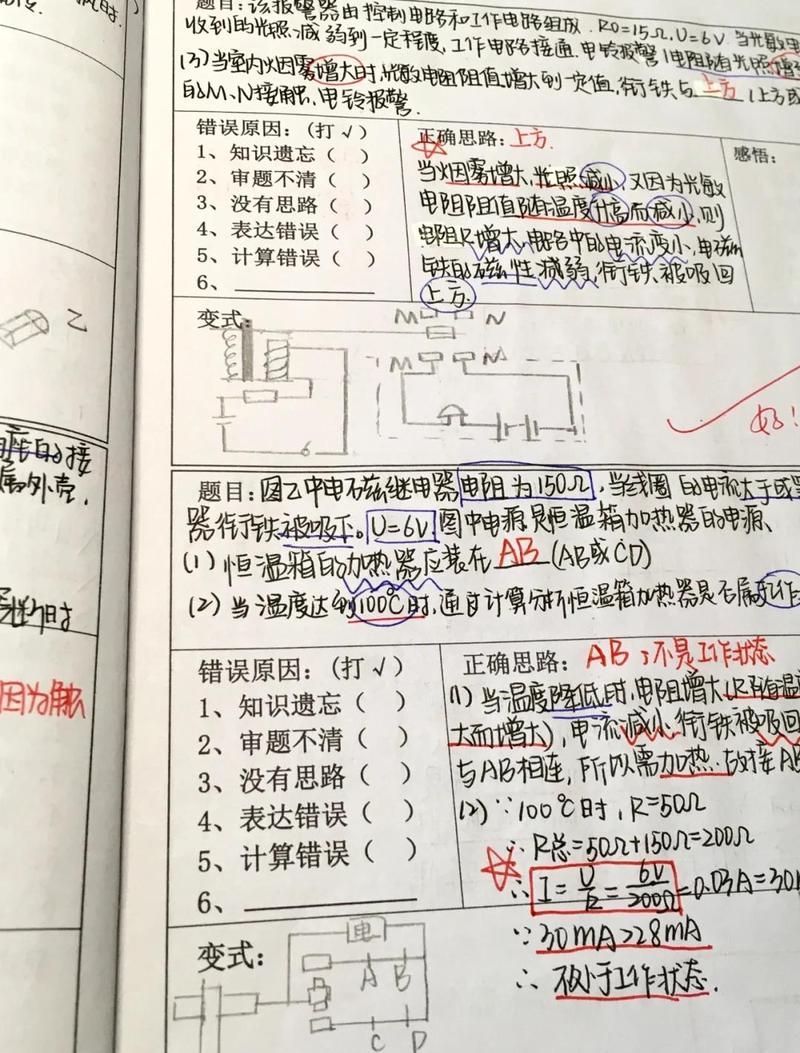 题目：该报警器由控制电路和工作电路组成．R0=15Ω，U=6V．当光敏电
收到的光照减弱到一定程度，工作电路接通，电铃报警（电阻随光照增
(3)当室内烟雾增大时，光敏电阻阻值增大到一定值，衔铁与 上方 （上方或
的M、N接触，电铃报警．
错误原因：（打√）
1、知识遗忘（ ）
2、审题不清（ ）
3、没有思路（ ）
4、表达错误（ ）
5、计算错误（ ）
6、
正确思路：上方．
当烟雾增大，光照减小，又因为光敏
电阻阻值随温度升高而减小，则
电阻R增大，电路中的电流变小，电磁
铁的磁性减弱，衔铁被吸回
上方．
感悟：
变式：
M N
M N
好！
乙
的接
属外壳．
时
因为触
题目：图乙中电磁继电器电阻为150Ω，当线圈的电流大于或
器衔铁被吸下。U=6V 图中电源是恒温箱加热器的电源、
(1)恒温箱的加热器应装在 AB (AB或CD)
(2)当温度达到100℃时，通过计算分析恒温箱加热器是否属于工作
错误原因：（打√）
1、知识遗忘（ ）
2、审题不清（ ）
3、没有思路（ ）
4、表达错误（ ）
5、计算错误（ ）
6、
正确思路：AB；不是工作状态
(1)当温度降低时，电阻增大（R随温
大而增大），电流减小，衔铁被吸回
与AB相连，所以需加热．故接AB
(2)∵100℃时，R=50Ω
∴R总=50Ω+150Ω=200Ω
∴I=U/R=6V/200Ω=0.03A=30
∵30mA>28mA
∴不处于工作状态．
变式：
电
A B
C D